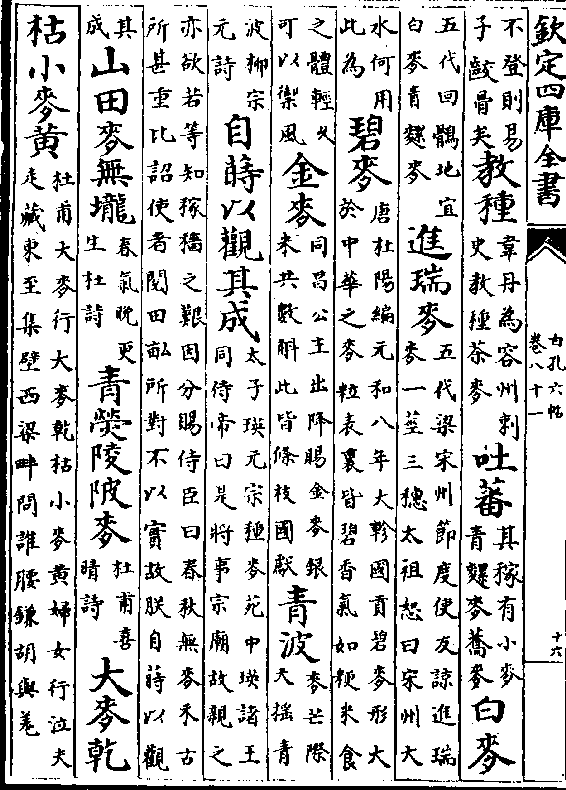 欽定四庫全書
白孔六帖
卷八十一
十六
不登則易
子骹骨矣
教種
韋丹為容州刺
史教種茶麥
吐蕃
其稼有小麥
青䴹麥蕎麥
白麥
五代回鶻地宜
白麥青䴹麥
進瑞麥
五代梁宋州節度使友諒進瑞
麥一莖三穗太祖怒曰宋州大
水何用
此為
碧麥
唐杜陽編元和八年大軫國貢碧麥形大
於中華之麥粒表裏皆碧香氣如粳米食
之體輕久
可以禦風
金麥
同昌公主出降賜金麥銀
米共數斛此皆條枝國獻
青波
麥芒際
天搖青
波柳宗
元詩
自蒔以觀其成
太子瑛元宗種麥苑中瑛諸王
同侍帝曰是將事宗廟故親之
亦欲若等知稼穡之艱因分賜侍臣曰春秋無麥禾古
所甚重比詔使者閱田畝所對不以實故朕自蒔以觀
其
成
山田麥無壠
春氣晚更
生杜詩
青熒陵陂麥
杜甫喜
晴詩
大麥乾
枯小麥黄
杜甫大麥行大麥乾枯小麥黄婦女行泣夫
走藏東至集壁西梁畔問誰腰鎌胡與羌